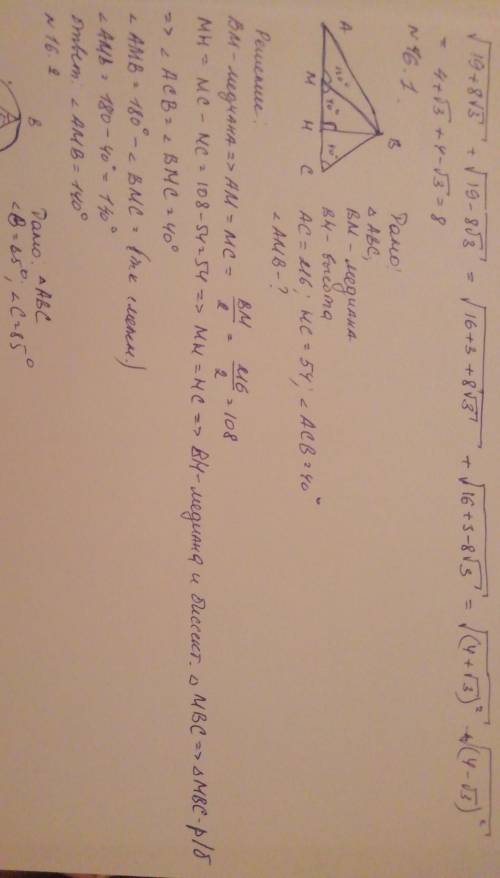 √19+8√3 + √19-8√3 = √16+3+8√3 + √16+3-8√3 = √(4+√3)² + √(4-√3)²
= 4+√3+4-√3=8
№16.1.
A
M
H
C
B
140°
40°
40°
Дано:
△ABC,
BM-медиана
BH-высота
AC=216; HC=54; ∠ACB=40°
∠AMB-?
Решение:
BM-медиана=>AM=MC= BM/2 = 216/2 =108
MH=MC-HC=108-54=54=>MH=HC=>BH-медиана и биссект. △MBC=>△MBC-р/б
=>∠ACB=∠BMC=40°
∠AMB=180°-∠BMC=(т.к смежн.)
∠AMB=180-40°=140°
Ответ: ∠AMB=140°
№16.2
B
Дано: △ABC
∠B=65°; ∠C=85°